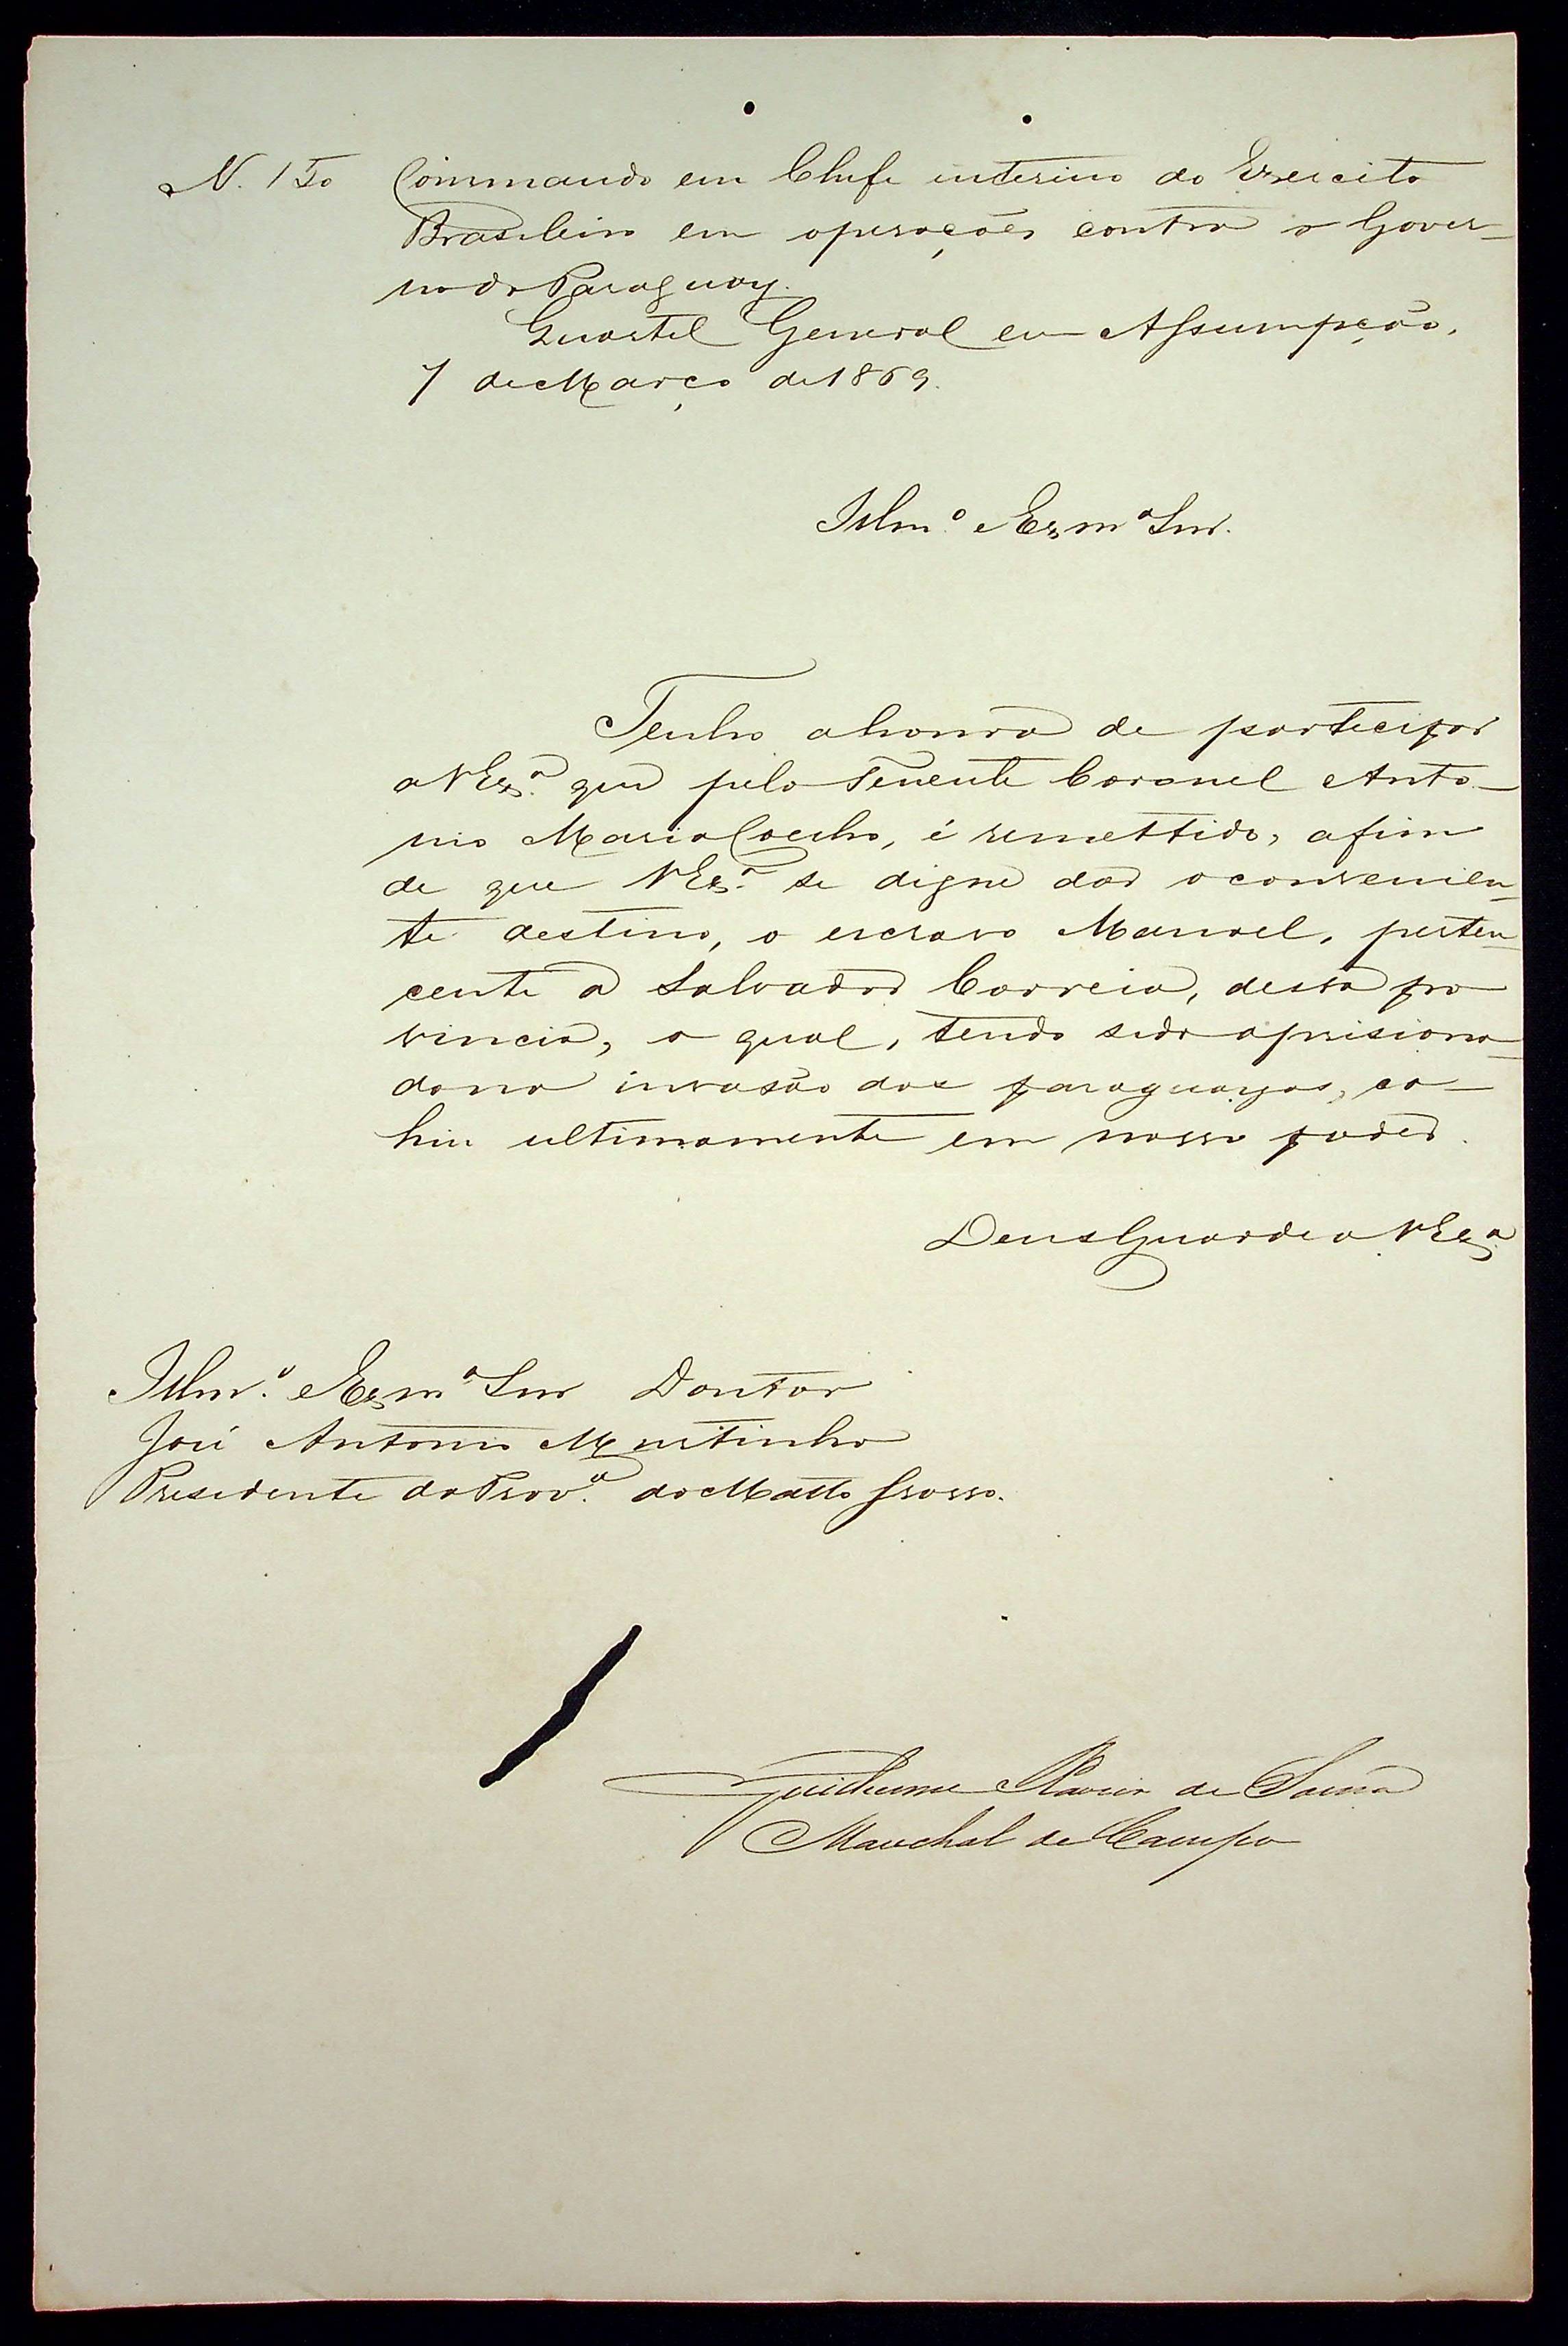 N. 150 Commando em Chefe interino do Exercito
Brasileiro em operações contra o Gover-
no do Paraguay.
Quartel General em Assumpção,
7 de Março de 1869.
Illmº e Exmº Snr.
Tenho a honra de participar
a VExª que pelo Tenente Coronel Anto-
nio Maria Coelho, é remettido, afim
de que VExª se digne dar o convenien-
te destino, o escravo Manoel, perten-
cente a Salvador Correia, dessa pro
vincia, o qual, tendo sido aprisiona-
do na invasão dos paraguayos, ca-
hiu ultimamente em nosso poder.
Deus Guarde a VExª
Illmº e Exmº Snr Doutor
José Antonio Murtinho
Presidente da Provª do Matto Grosso.
Guilherme Xavier de Souza
Marechal de Campo